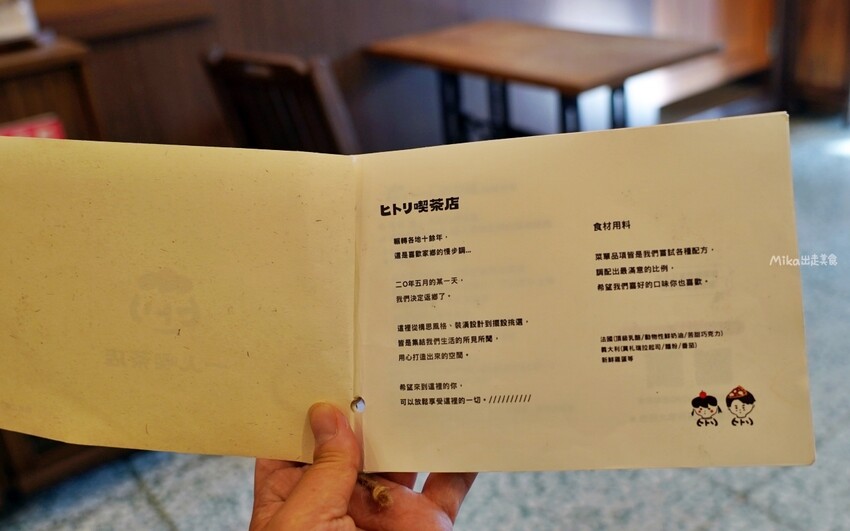 ヒトリ喫茶店
輾轉各地十餘年，
還是喜歡家鄉的慢步調...
二0年五月的某一天，
我們決定返鄉了。
這裡從構思風格、裝潢設計到擺設挑選，
皆是集結我們生活的所見所聞，
用心打造出來的空間。
希望來到這裡的你，
可以放鬆享受這裡的一切。//////////
食材用料
菜單品項皆是我們嘗試各種配方，
調配出最滿意的比例，
希望我們喜好的口味你也喜歡。
法國(頂級乳酪/動物性鮮奶油/苦甜巧克力)
義大利(莫札瑞拉起司/麵粉/番茄)
新鮮雞蛋等
ヒトリ
ヒトリ
Mika出走美食